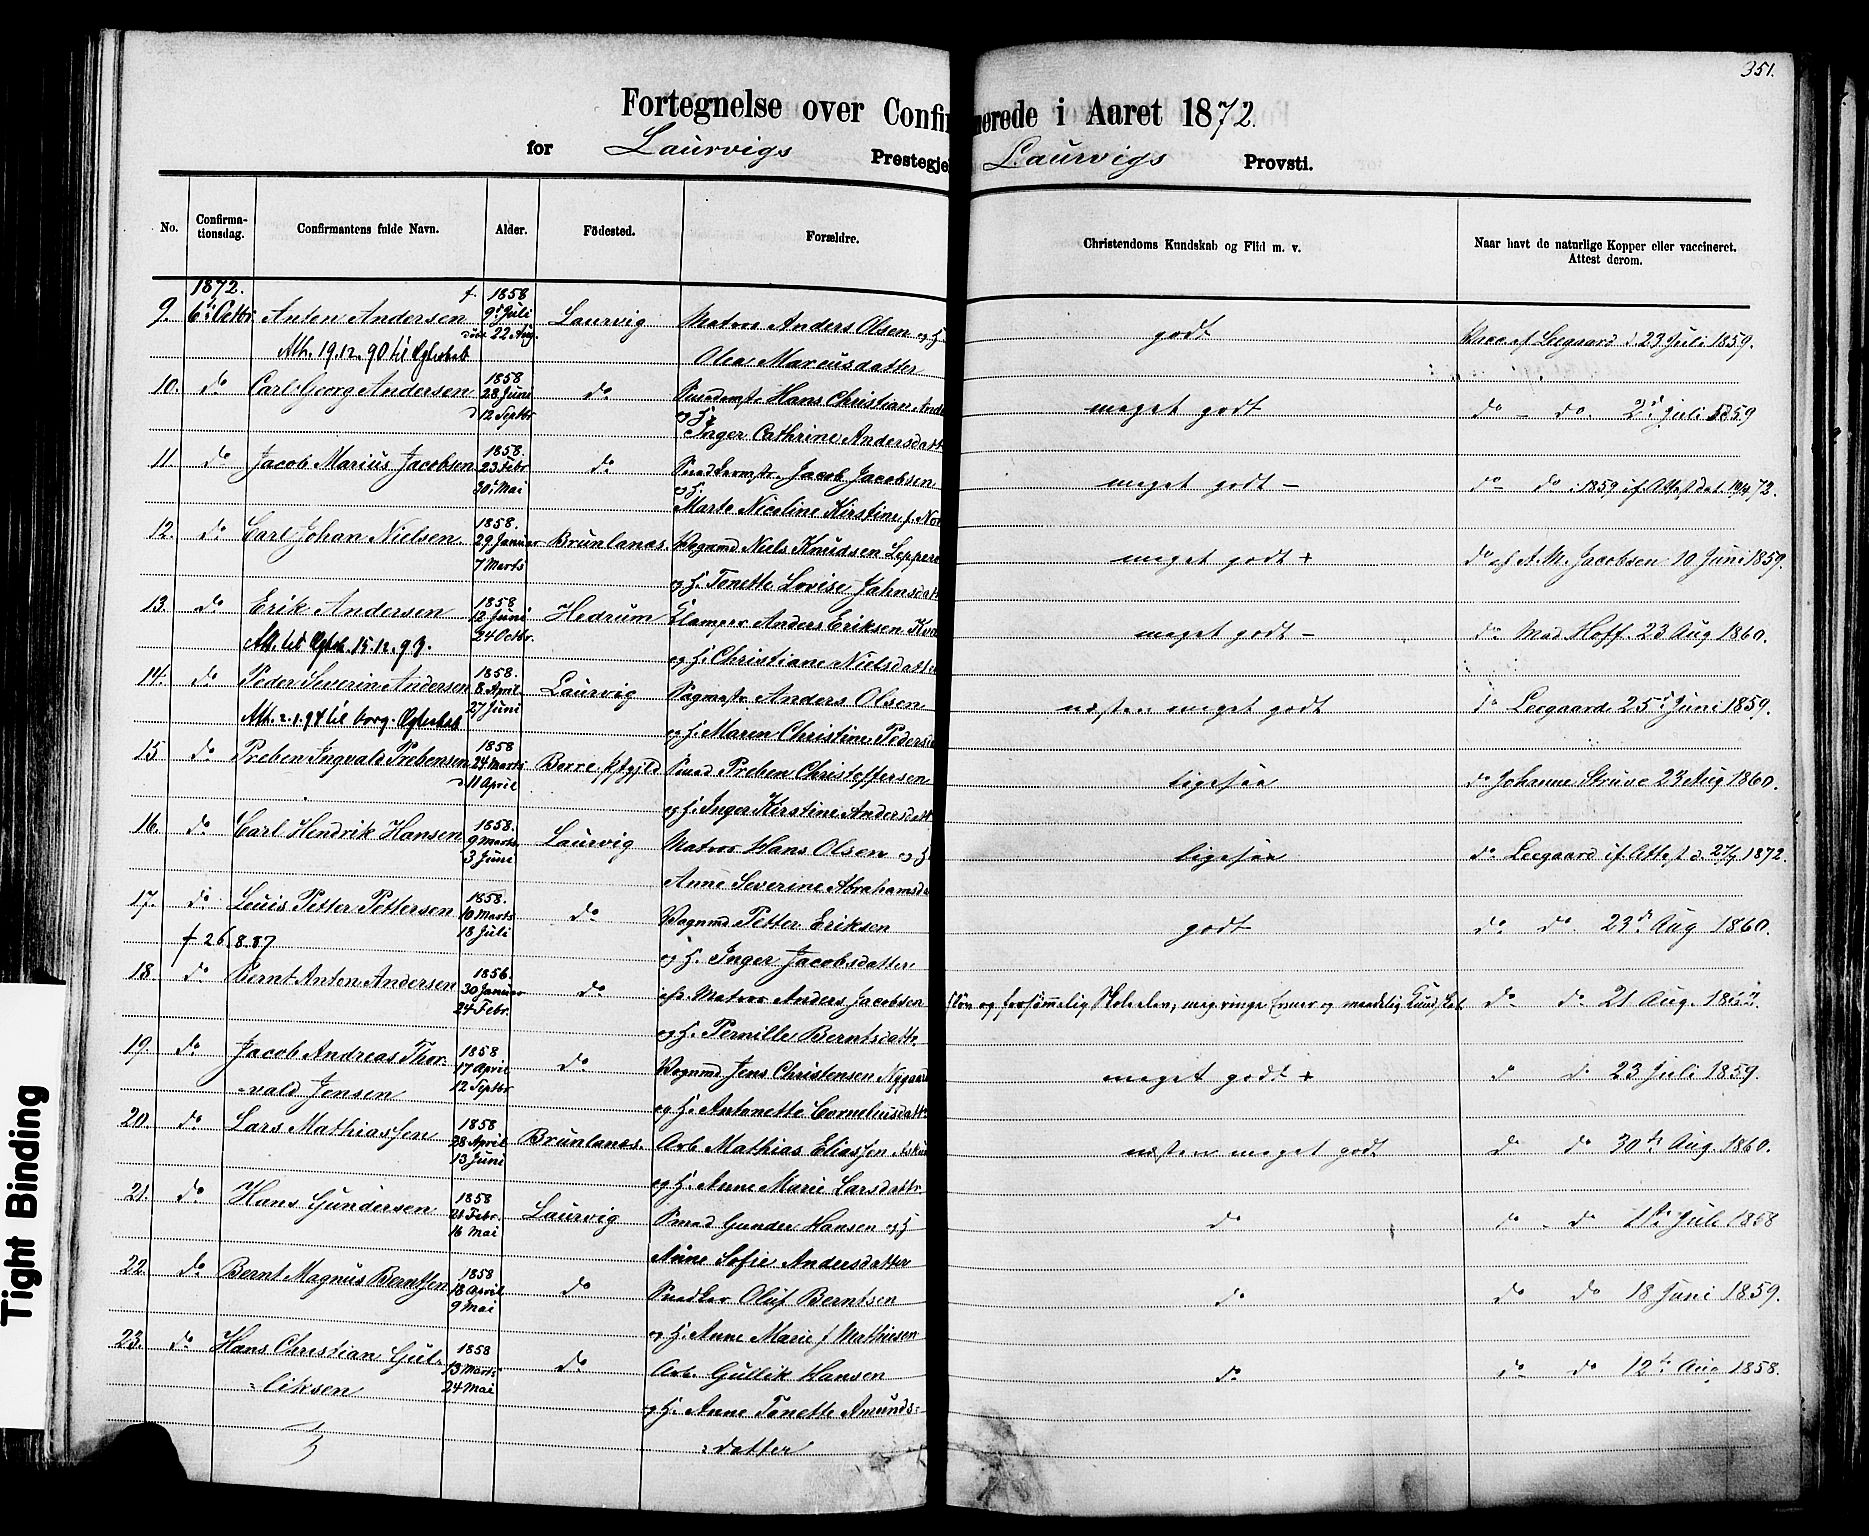 351.
Fortegnelse over Confir merede i Aaret 1872.
for Laurvigs Prestegje Laurvigs Provsti.
No. Confirma-tionsdag. Confirmantens fulde Navn. Alder. Födested. Forældre. Christendoms Kundskab og Flid m. v. Naar havt de naturlige Kopper eller vaccineret. Attest derom.
1872. f. 1858
9. 6te Octbr Anton Andersen 9de Juli Laurvig Matros Anders Olsen og H. godt Vacc af Leegaard d 23 Juli 1859.
döbt 22 Aug.
Att. 19.12.90 til Ægteskab Olea Marcusdatter
10. do Carl Georg Andersen 1858 28 Juni d 12 Septbr do Hans Christian Ande meget godt do - do. 2d Juli 1859
og H. Inger Cathrine Andersdatt
11. do Jacob Marius Jacobsen 1858. 23 Febr 30. Mai do Jacob Jacobsen meget godt - do - do 1859 if Attest dat 72.
og H. Marte Nicoline Kirstine f. No
12. do Carl Johan Nielsen 1858. 29 Januar 7 Marts Brunlanæs Vognmd Niels Knudsen meget godt + do af A. M. Jacobsen 10 Juni 1859.
og H. Tonette Lovise Jahnsdatt
13. do Erik Andersen 1858 12 Juni 24 Octbr. Hedrum Anders Eriksen meget godt - do Mad. Hoff. 23 Aug 1860.
Att. til Ægtesk. 15.12.93. og H. Christiane Nielsdatte
14. do Peder Severin Andersen 1858. 8 April 27 Juni Laurvig Anders Olsen næsten meget godt do Leegaard 25de Juni 1859.
Att. 2.1.94 til borg. Ægteskab og H. Maren Christine Peders
15 do Preben Ingvald Prebensen 1858 24 Marts d 11 April Borre Smed Preben Christoffersen ligesaa do Johanne Struve 23 Aug 1860.
og H. Inger Kirstine Andersdatt
16. do Carl Hendrik Hansen 1858. 9 Marts 3 Juni Laurvig Matros Hans Olsen og H. ligesaa do Leegaard if Attest d. 27/9 1872.
Anne Severine Abrahamsd
17. do Louis Petter Pettersen 1858. 10 Marts 18 Juli do Vognmd Petter Eriksen godt do do. 23d Aug 1860.
† 26.8.87 og H. Inger Jacobsdatter
18. do Bernt Anton Andersen 1856. 30 Januar 24 Febr. do Matros Anders Jacobsen og forsömmelig meg. ringe Evner og maadelig Kundskab do do 21 Aug.
og H. Pernille Berntsdattr
19. do Jacob Andreas Thor- 1858 17 April 12 Septbr do Vognmd Jens Christensen Nygaard meget godt + do do 23 Juli 1859.
vald Jensen og H. Antonette Corneliusdatt
20. do Lars Mathiassen 1858 28 April 13 Juni Brunlanæs. Arb Mathias Eliassen næsten meget godt do do 30te Aug. 1860.
og H. Anne Marie Larsdattr.
21. do Hans Gundersen 1858 21 Febr. 16 Mai Laurvig Smed Gunder Hansen og H do do - do Juli 1858
Anne Sofie Andersdatter
22. do Bernt Magnus Berntsen 1858 18 April 9 Mai do Snedker Oluf Berntsen do do do 18 Juni 1859.
og H. Anne Marie f Mathiesen
23. do Hans Christian Gul- 1858 13 Marts 24 Mai do Arb. Gullik Hansen do do do 12te Aug 1858.
liksen og H. Anne Tonette Amunds-
datter
Tight Binding